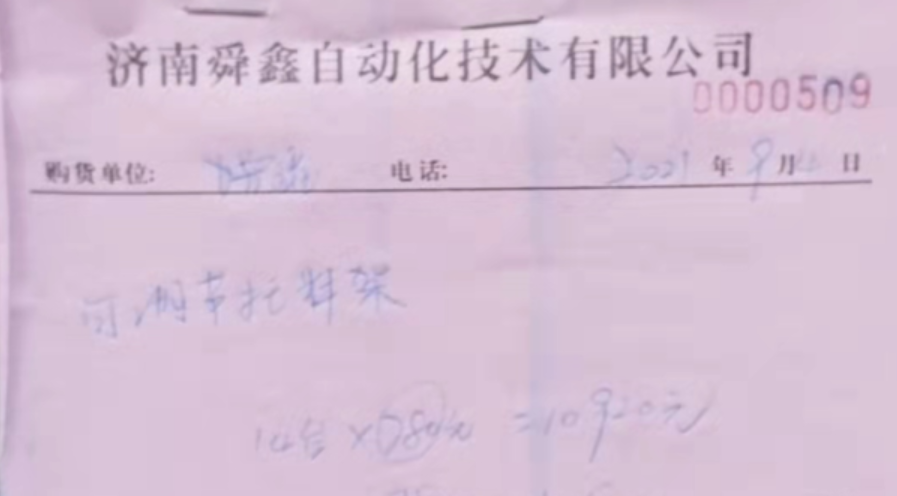 济南舜鑫自动化技术有限公司
0000509
购货单位: 电话: 2021 年 9 月 日
可调节托料架
14台×780元=10920元